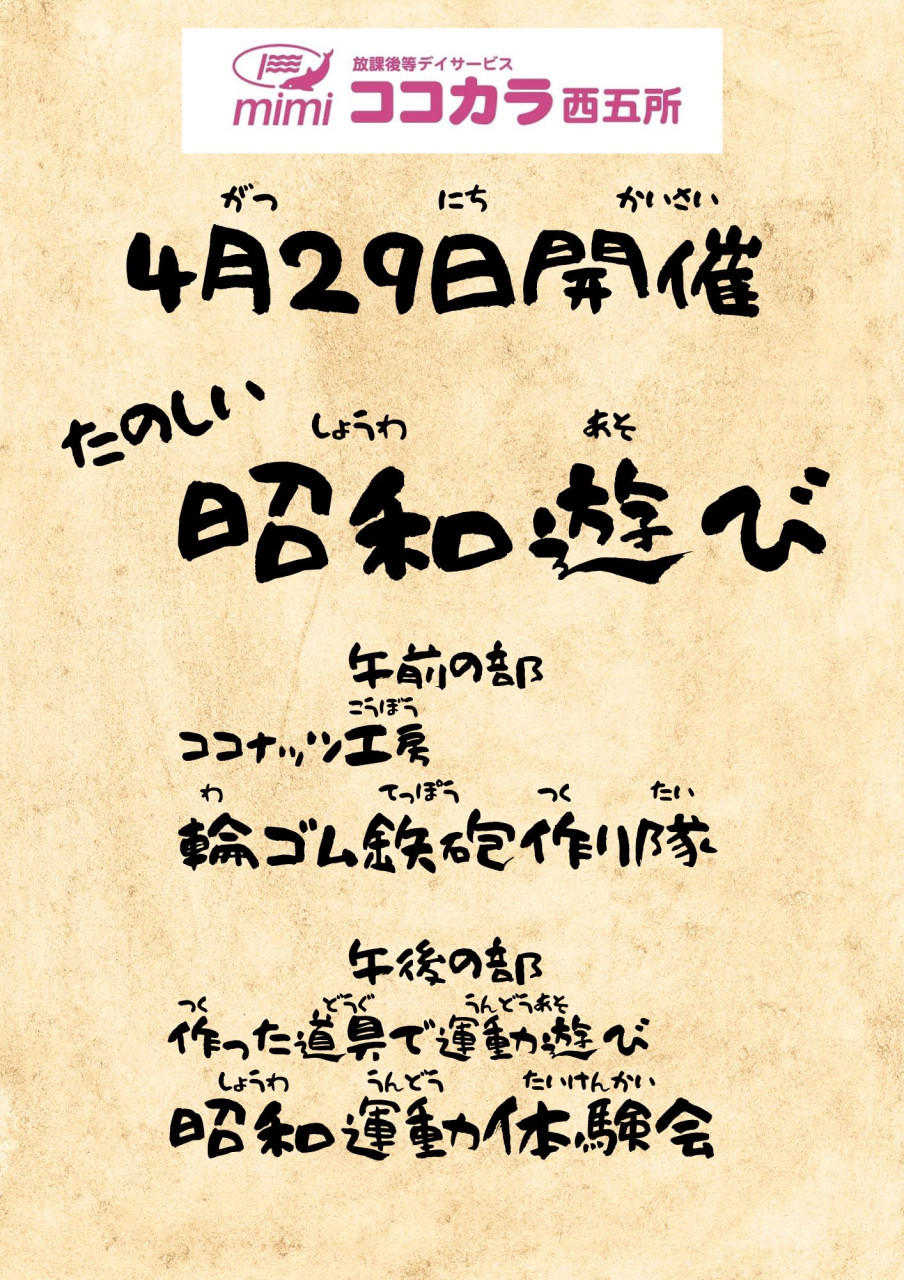 放課後等デイサービス
mimi ココカラ西五所
がつ にち かいさい
4月29日開催
たのしい
しょうわ あそ
昭和遊び
午前の部
こうぼう
ココナッツ工房
わ てっぽう つく たい
輪ゴム鉄砲作り隊
午後の部
つく どうぐ うんどうあそ
作った道具で運動遊び
しょうわ うんどう たいけんかい
昭和運動体験会